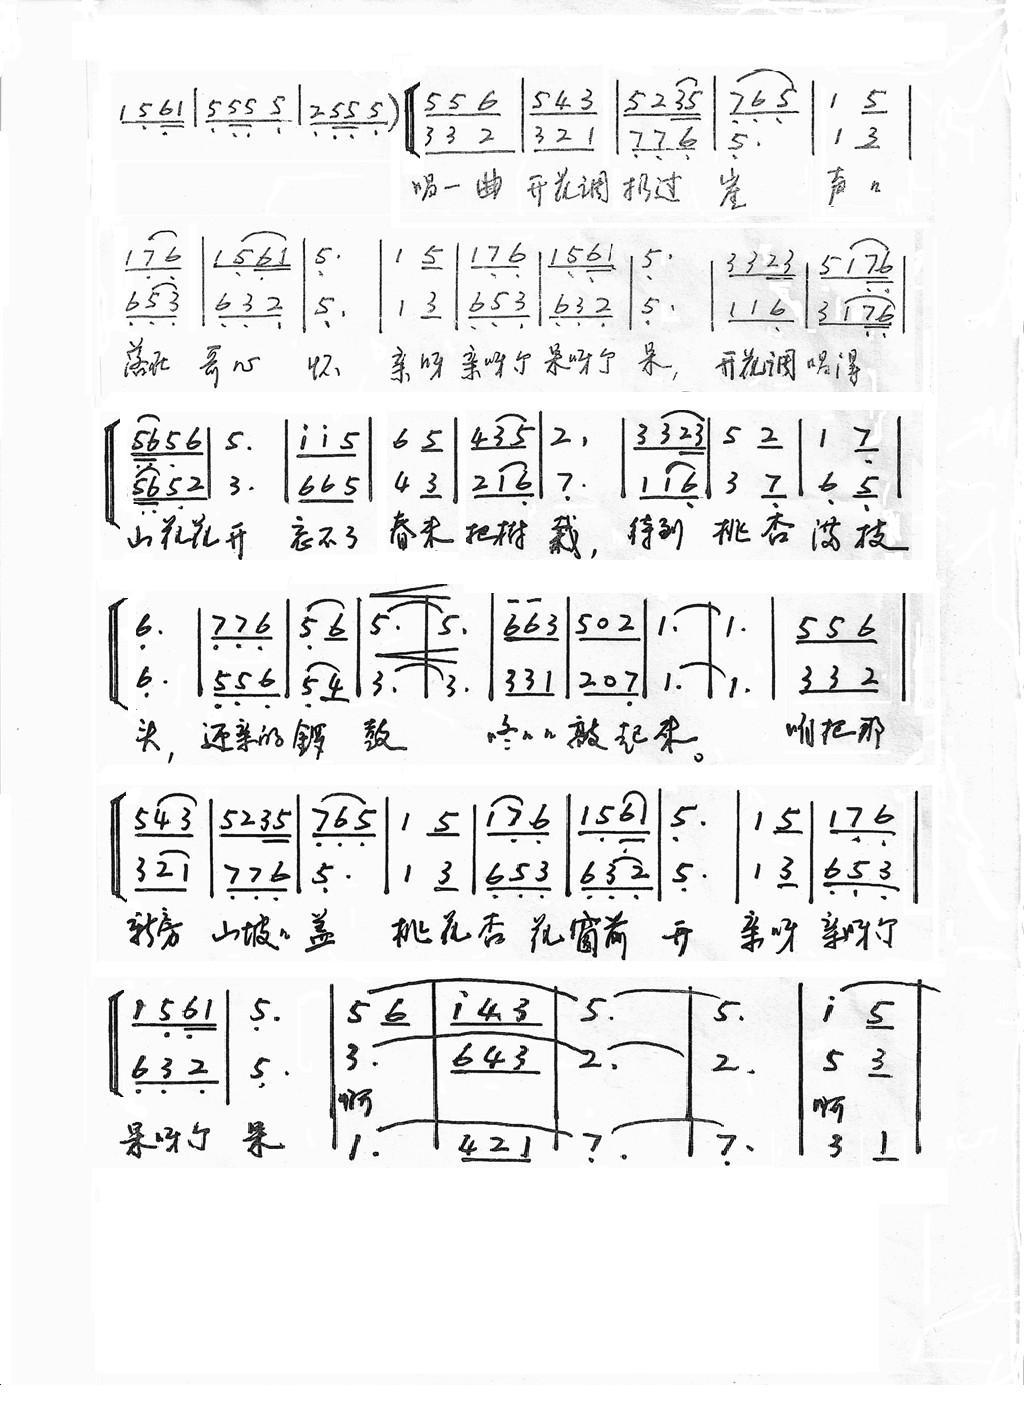 1 5 6 1 | 5 5 5 5 | 2 5 5 5 ) [ 5 5 6 | 5 4 3 | 5 2 3 5 | 7 6 5 | 1 5 |
3 3 2 | 3 2 1 | 7 7 6 | 5 . | 1 3 |
唱一曲 开花调 扬过 崖 声〃
1 7 6 | 1 5 6 1 | 5 . | 1 5 | 1 7 6 | 1 5 6 1 | 5 . | 3 3 2 3 | 5 1 7 6 |
6 5 3 | 6 3 2 | 5 . | 1 3 | 6 5 3 | 6 3 2 | 5 . | 1 1 6 | 3 1 7 6 |
落在 哥心 怀 亲呀 亲呀尔 呆呀尔 呆, 开花调 唱得
5 6 5 6 | 5 . | i i 5 | 6 5 | 4 3 5 | 2 , | 3 3 2 3 | 5 2 | 1 7 |
5 6 5 2 | 3 . | 6 6 5 | 4 3 | 2 1 6 | 7 . | 1 1 6 | 3 7 | 6 5 |
山花花开 忘不了 春来 把树 栽, 待到 桃杏 满枝
6 . | 7 7 6 | 5 6 | 5 . | 5 . | 6 6 3 | 5 0 2 | 1 . | 1 . | 5 5 6 |
6 . | 5 5 6 | 5 4 | 3 . | 3 . | 3 3 1 | 2 0 7 | 1 . | 1 . | 3 3 2 |
头, 迎亲的 锣 鼓 咚〃〃 敲起来。 咱把那
5 4 3 | 5 2 3 5 | 7 6 5 | 1 5 | 1 7 6 | 1 5 6 1 | 5 . | 1 5 | 1 7 6 |
3 2 1 | 7 7 6 | 5 . | 1 3 | 6 5 3 | 6 3 2 | 5 . | 1 3 | 6 5 3 |
新房 山坡〃 盖 桃花杏 花窗前 开 亲呀 亲呀尔
1 5 6 1 | 5 . | 5 6 | i 4 3 | 5 . | 5 . | i 5 |
6 3 2 | 5 . | 3 . | 6 4 3 | 2 . | 2 . | 5 3 |
啊 啊
呆呀尔 呆 1 . | 4 2 1 | 7 . | 7 . | 3 1 |